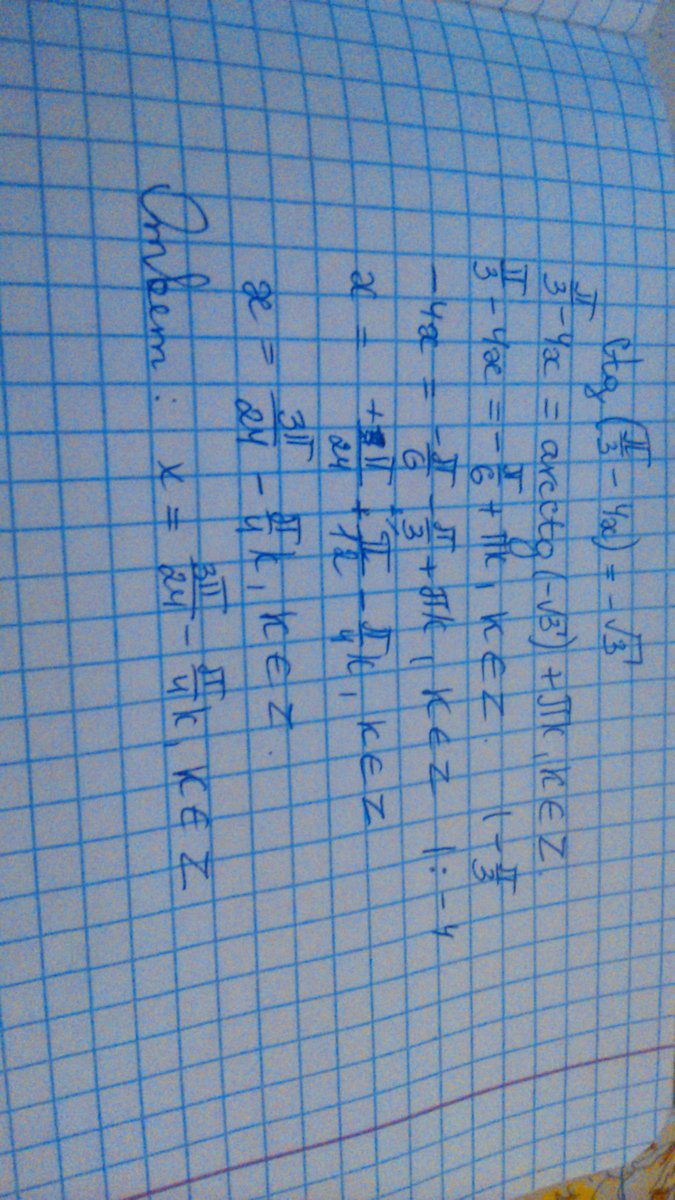 ctg (π/3 - 4x) = -√3
π/3 - 4x = arcctg (-√3) + πk, k ∈ Z.
π/3 - 4x = - π/6 + πk, k ∈ Z. | - π/3
-4x = - π/6 - π/3 + πk, k ∈ Z | : -4
x = + π/24 + π/12 - π/4 k, k ∈ Z
x = 3π/24 - π/4 k, k ∈ Z.
Ответ: x = 3π/24 - π/4 k, k ∈ Z